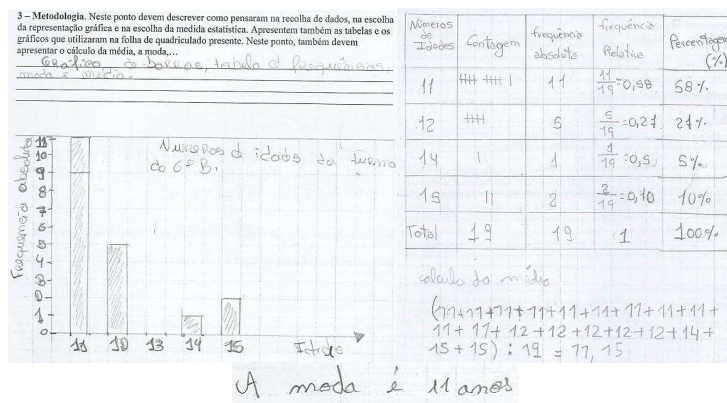 3 – Metodologia. Neste ponto devem descrever como pensaram na recolha de dados, na escolha
da representação gráfica e na escolha da medida estatística. Apresentem também as tabelas e os
gráficos que utilizaram na folha de quadriculado presente. Neste ponto, também devem
apresentar o cálculo da média, a moda,…
Gráfico de barras, tabela d frequências,
moda e média.
Frequência absoluta
Números d idade da turma
do 6º B.
11
10
9
8
7
6
5
4
3
2
1
0
11 12 13 14 15 Idades
Números de Idades Contagem frequência absoluta frequência Relativa Percentagem (%)
11 IIIII IIIII I 11 11/19=0,58 58%
12 IIIII 5 5/19=0,21 21%
14 I 1 1/19=0,5 5%
15 II 2 2/19=0,10 10%
Total 19 19 1 100%
calculo da média
(11+11+11+11+11+11+11+11+11+
11+11+12+12+12+12+12+14+
15+15) : 19 = 11,15
A moda é 11 anos